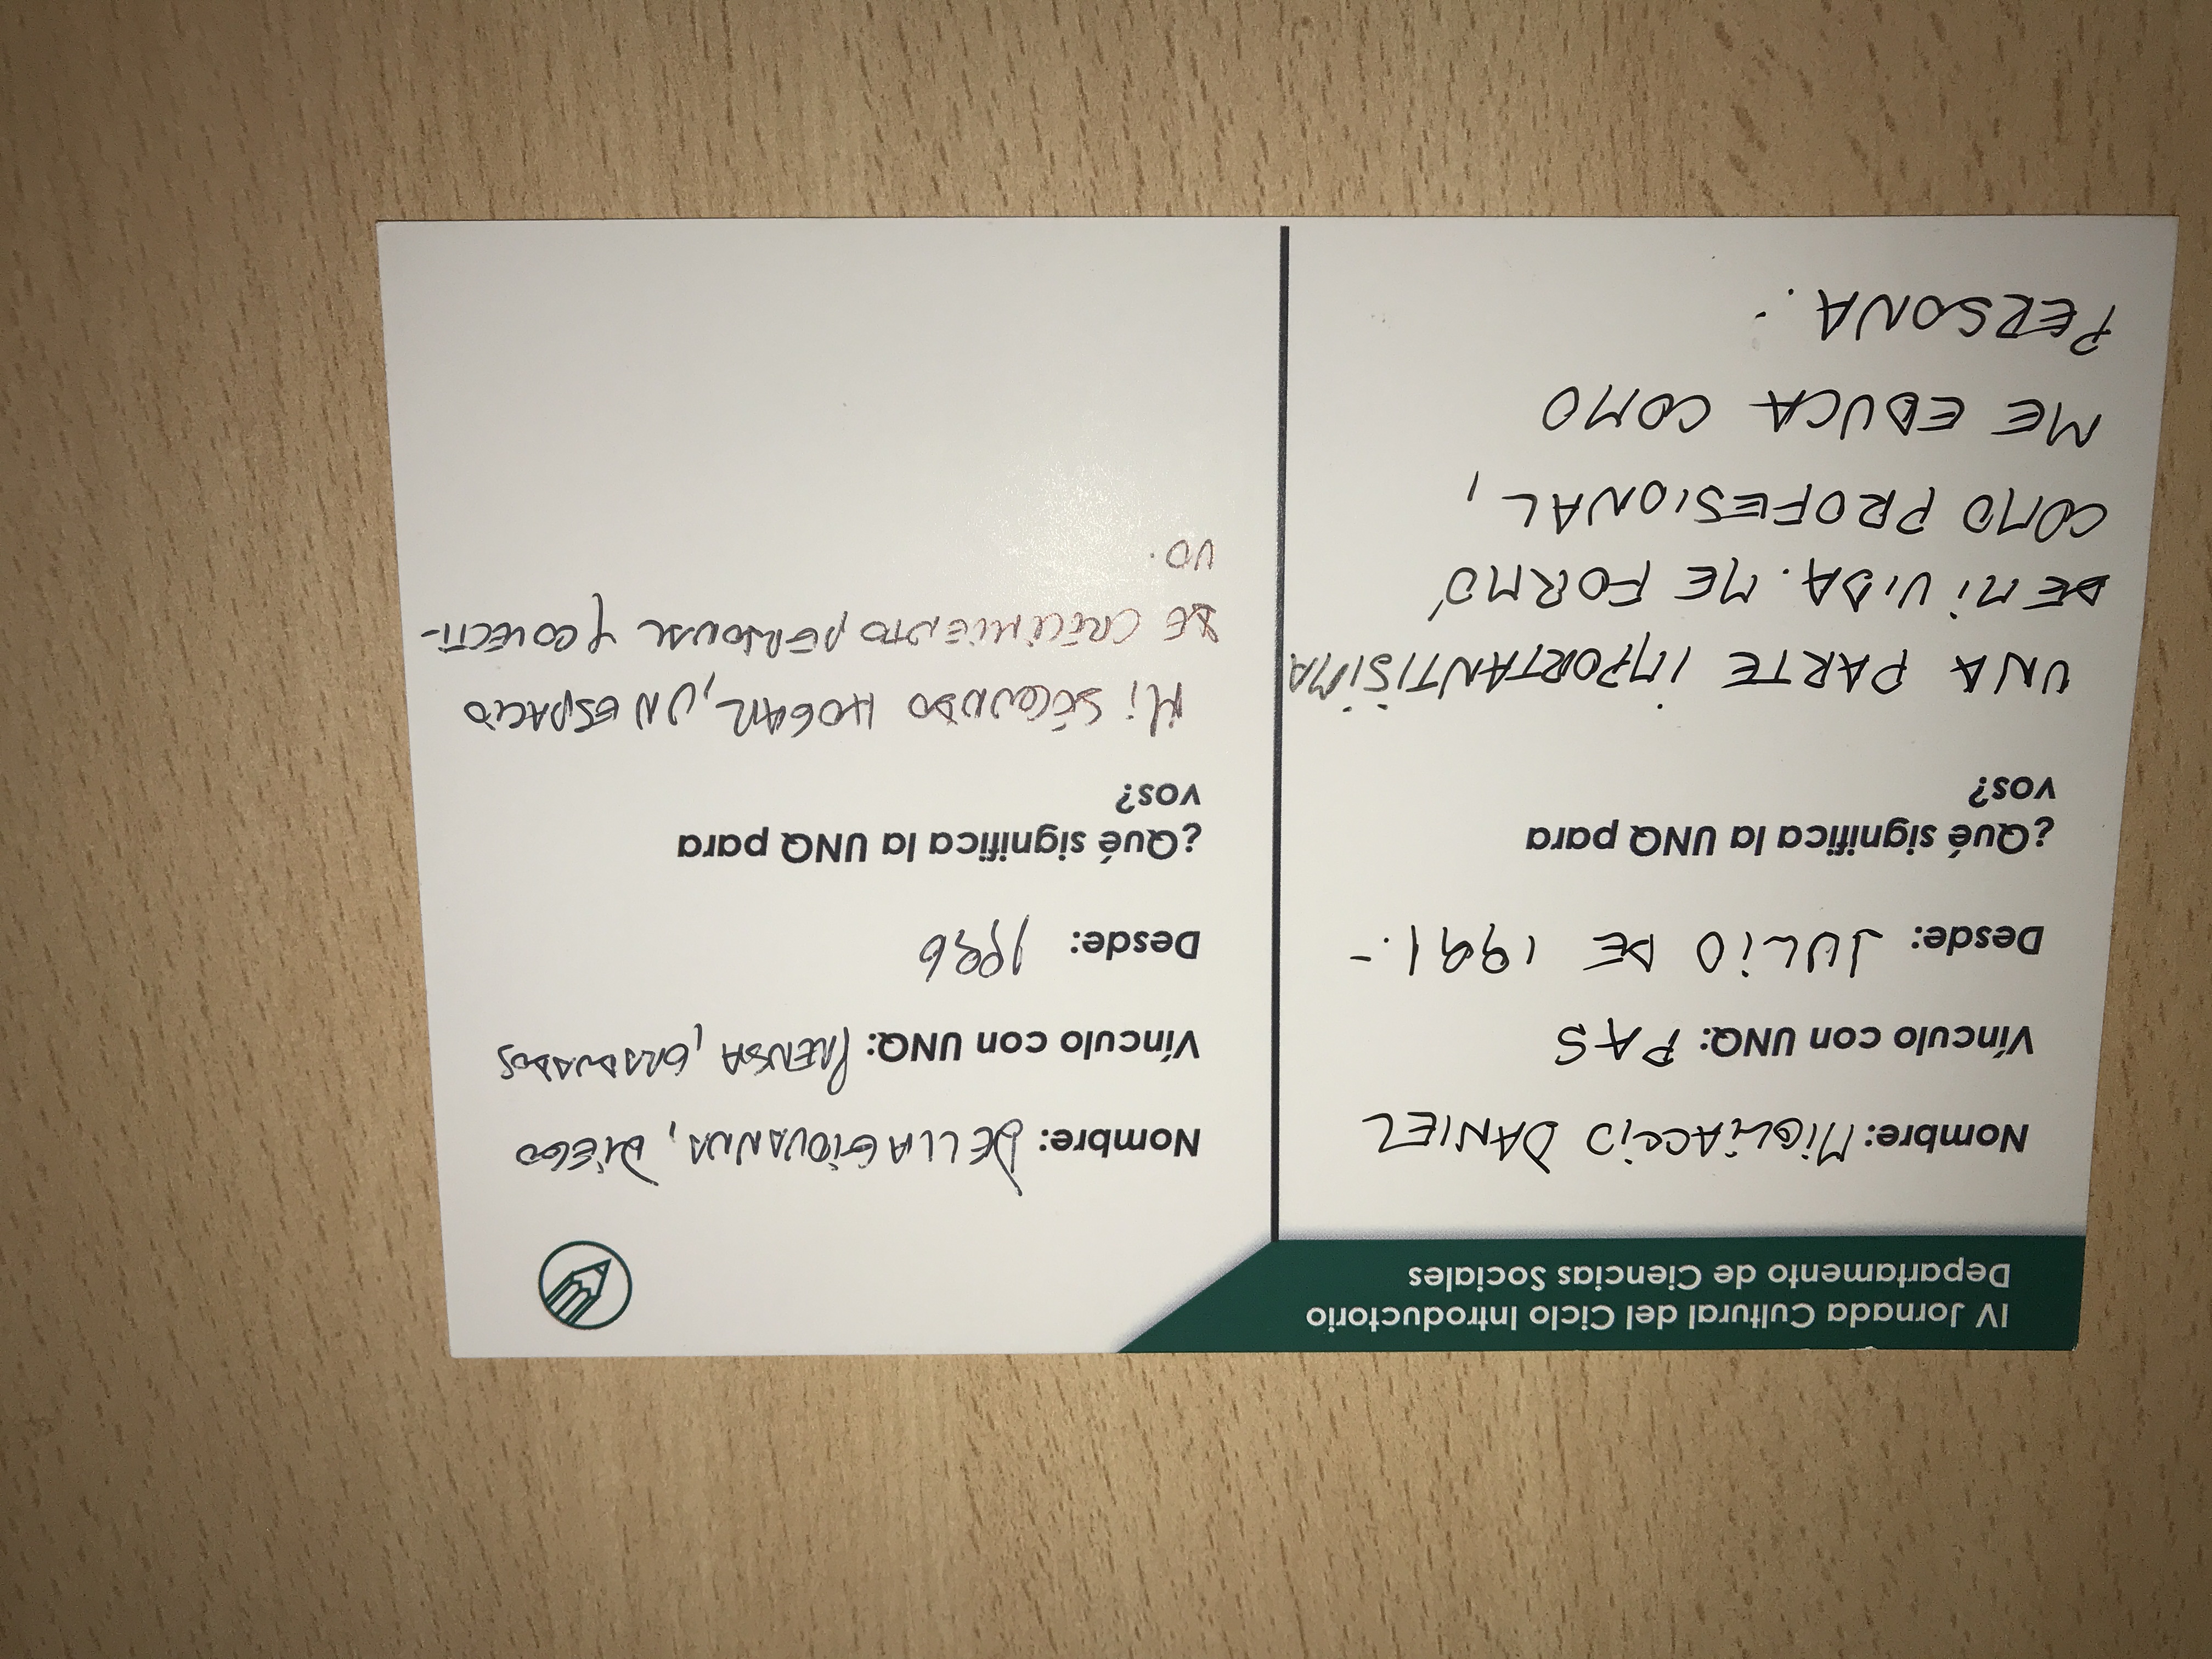 IV Jornada Cultural del Ciclo Introductorio
Departamento de Ciencias Sociales
Nombre: MIGLIACCIO DANIEL
Vínculo con UNQ: PAS
Desde: JULIO DE 1991.-
¿Qué significa la UNQ para
vos?
UNA PARTE IMPORTANTISIMA
DE MI VIDA. ME FORMÓ
COMO PROFESIONAL,
ME EDUCA COMO
PERSONA.-
Nombre: DELLAGIOVANNA, DIEGO
Vínculo con UNQ: PRENSA, GRADUADOS
Desde: 1996
¿Qué significa la UNQ para
vos?
MI SEGUNDO HOGAR, UN ESPACIO
DE CRECIMIENTO PERSONAL Y COLECTI-
VO.